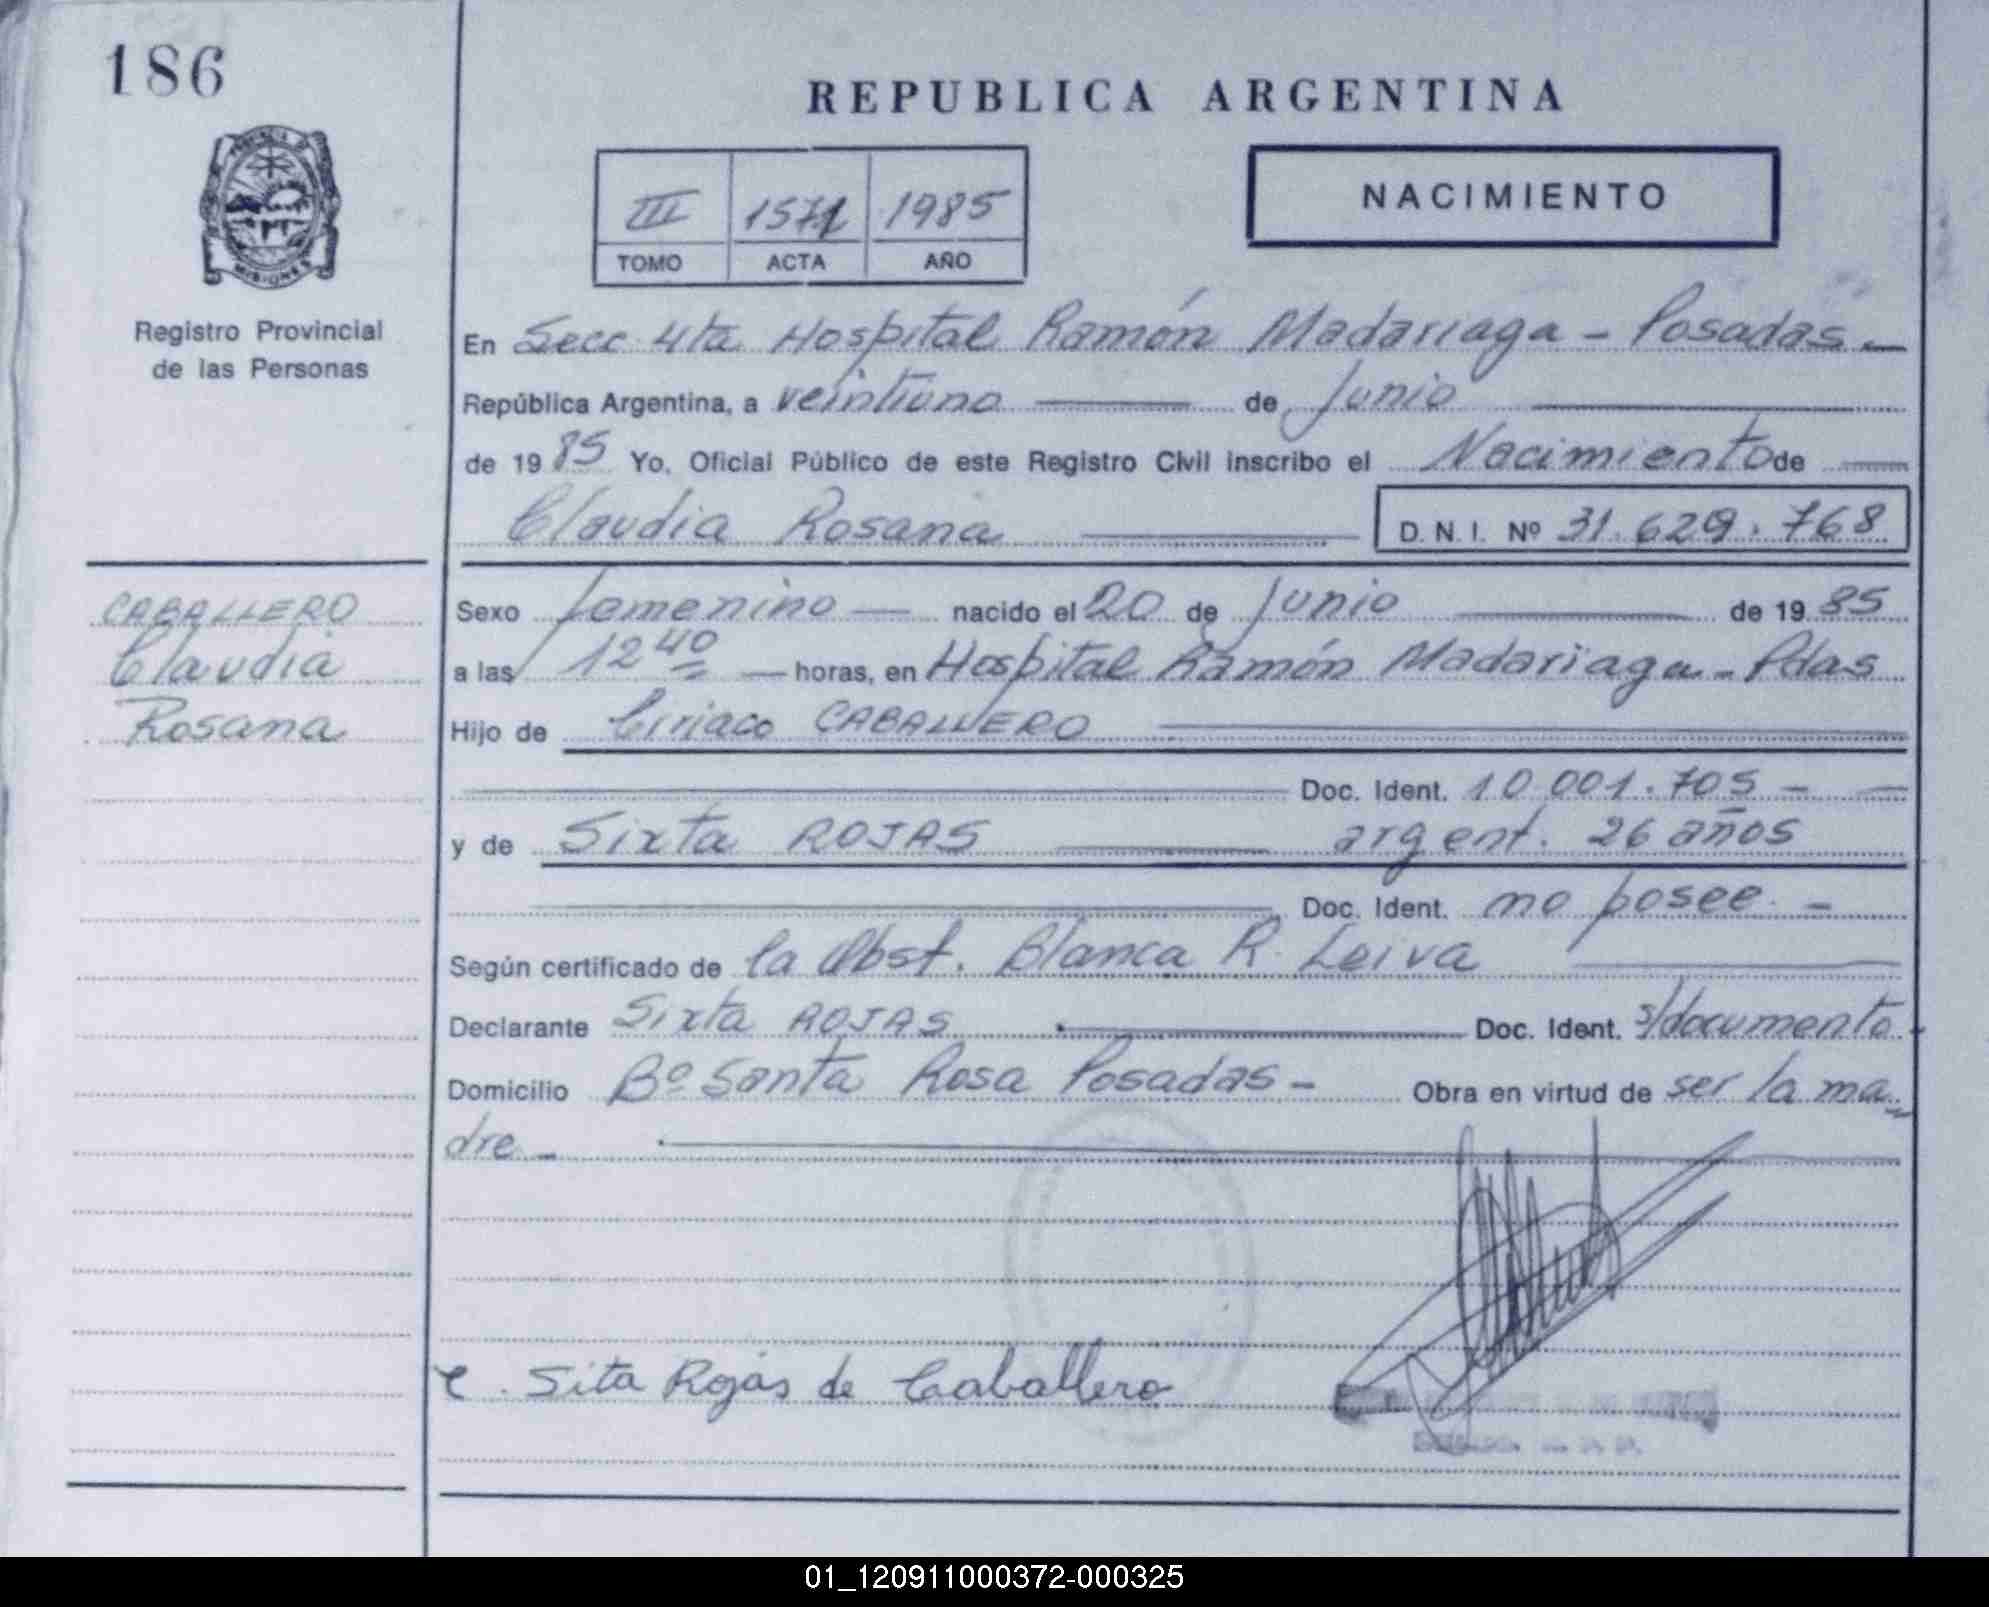 186
REPUBLICA ARGENTINA
PROVINCIA DE
MISIONES
Registro Provincial
de las Personas
III 1571 1985
TOMO ACTA AÑO
NACIMIENTO
En Secc. 4ta Hospital Ramón Madariaga - Posadas.-
República Argentina, a veintiuno de Junio
de 1985 Yo, Oficial Público de este Registro Civil inscribo el Nacimiento de
Claudia Rosana D. N. I. Nº 31.629.768
CABALLERO
Claudia
Rosana
Sexo femenino nacido el 20 de Junio de 1985
a las 12 40 horas, en Hospital Ramón Madariaga - Pdas
Hijo de Ciriaco CABALLERO
Doc. Ident. 10.001.705 -
y de Sixta ROJAS argent. 26 años
Doc. Ident. no posee. -
Según certificado de la Obst. Blanca R. Leiva
Declarante Sixta ROJAS Doc. Ident. s/documento.
Domicilio Bº Santa Rosa Posadas - Obra en virtud de ser la ma-
dre -
Sita Rojas de Caballero
01_120911000372-000325